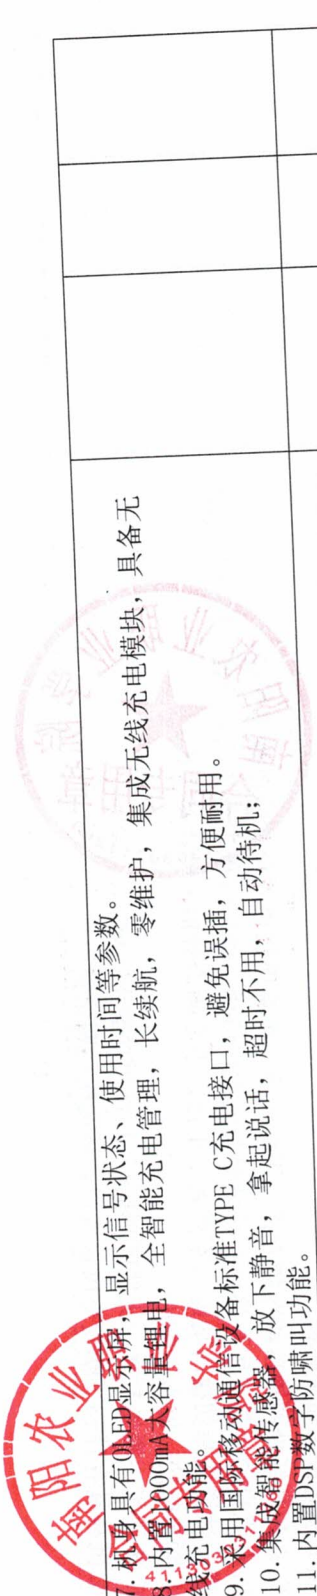 7. 机身具有OLED显示屏，显示信号状态、使用时间等参数。
8. 内置1000mA大容量锂电，全智能充电管理，长续航，零维护，集成无线充电模块，具备无
线充电功能。
9. 采用国际移动通信设备标准TYPE C充电接口，避免误插，方便耐用。
10. 集成智能传感器，放下静音，拿起说话，超时不用，自动待机；
11. 内置DSP数字防啸叫功能。
南阳农业职业学院